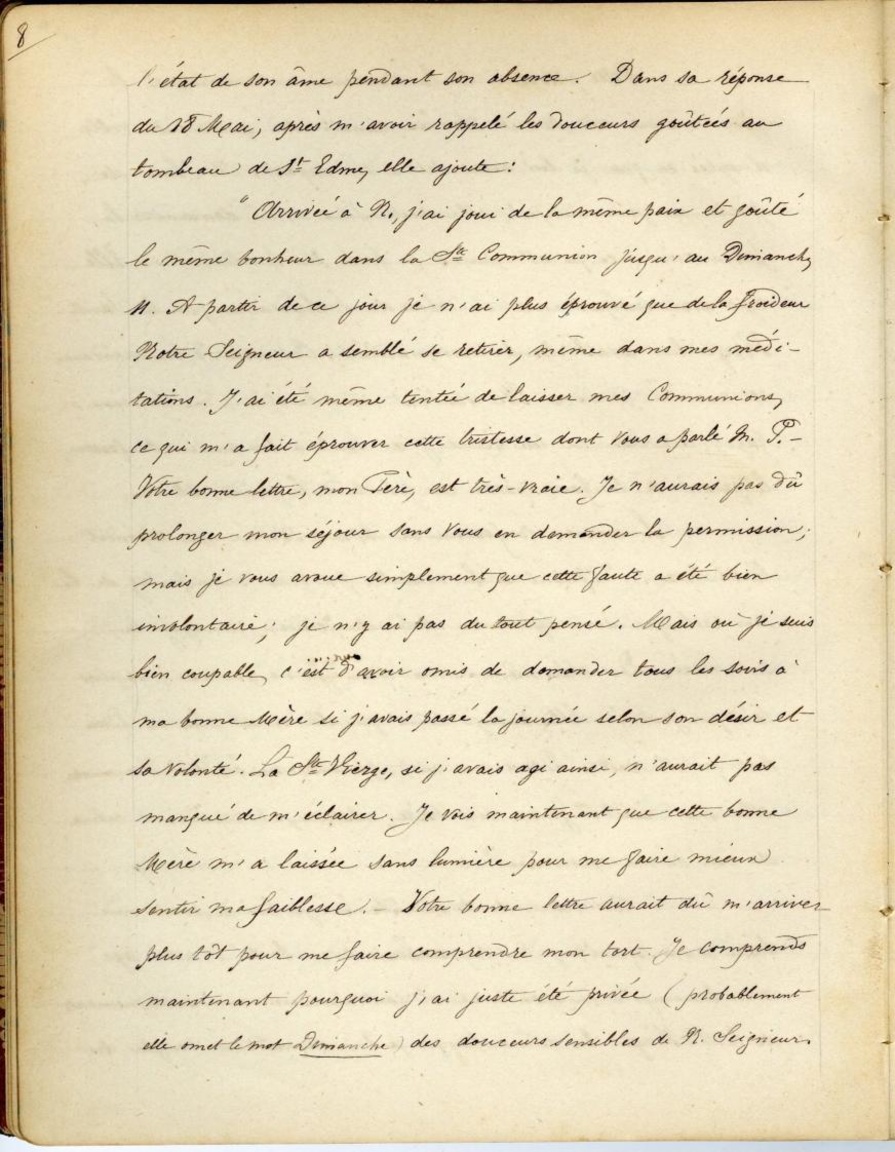 8
l'état de son âme pendant son absence. Dans sa réponse
du 18 Mai, après m'avoir rappelé les douceurs goûtées au
tombeau de St Edme, elle ajoute :
"Arrivée à N., j'ai joui de la même paix et goûté
le même bonheur dans la Ste Communion jusqu'au Dimanche
N. A partir de ce jour je n'ai plus éprouvé que de la froideur
Notre Seigneur a semblé se retirer, même dans mes médi-
tations. J'ai été même tentée de laisser mes Communions,
ce qui m'a fait éprouver cette tristesse dont vous a parlé M. P. –
Votre bonne lettre, mon Père, est très-vraie. Je n'aurais pas dû
prolonger mon séjour sans vous en demander la permission ;
mais je vous avoue simplement que cette faute a été bien
involontaire ; je n'y ai pas du tout pensé. Mais où je suis
bien coupable, c'est d'avoir omis de demander tous les soirs à
ma bonne Mère si j'avais passé la journée selon son désir et
sa volonté. La Ste Vierge, si j'avais agi ainsi, n'aurait pas
manqué de m'éclairer. Je vois maintenant que cette bonne
Mère m'a laissée sans lumière pour me faire mieux
sentir ma faiblesse. – Votre bonne lettre aurait dû m'arriver
plus tôt pour me faire comprendre mon tort. Je comprends
maintenant pourquoi j'ai juste été privée (probablement
elle omet le mot Dimanche) des douceurs sensibles de N. Seigneur.